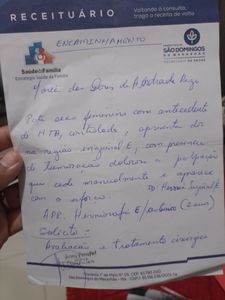 RECEITUÁRIO
Voltando à consulta,
traga a receita de volta
ENCAMINHAMENTO
Saúde da Família
Estratégia Saúde da Família
PREFEITURA DE
SÃO DOMINGOS
DO MARANHÃO
SECRETARIA DE SAÚDE
Maria das Dores de Andrade
Pcte sexo feminino com antecedente
de HTA, controlada, apresenta dor
na região inguinal E, com presença
de tumoração dolorosa a palpação
que cede manualmente e aparece
com o esforço. Hernia Inguinal E
APP: Herniorrafia E / anos)
Solicito:
Avaliação e tratamento cirurgico
São Domingos do Maranhão - MA